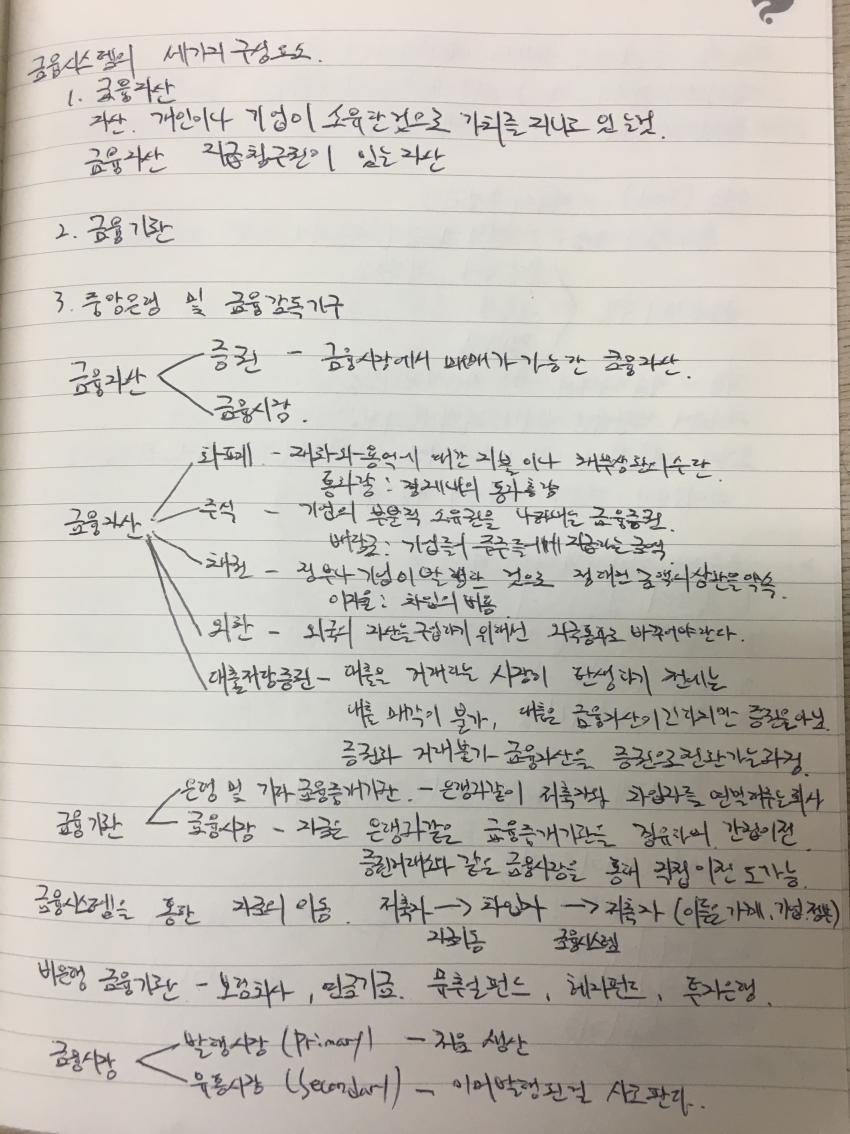 금융시스템의 세가지 구성요소.
1. 금융자산
자산. 개인이나 기업이 소유한것으로 가치를 지니고 있는것.
금융자산 지급청구권이 있는자산
2. 금융기관
3. 중앙은행 및 금융감독기구
금융자산
증권 - 금융시장에서 매매가 가능한 금융자산.
금융시장.
금융자산
화폐 - 재화와 용역에 대한 지불이나 채무상환의수단.
통화량 : 경제내의 통화총량
주식 - 기업의 부분적 소유권을 나타내는 금융증권.
배당금 : 기업들이 주주들에게 지급하는 금액.
채권 - 정부나 기업이 발행한 것으로 정해진 금액의상환을약속.
이자율 : 차입의 비용.
외환 - 외국의 자산을구입하기 위해선 외국통화로 바꾸어야한다.
대출저당증권 - 대출을 거래하는 시장이 탄생하기 전에는
대출 매각이 불가, 대출은 금융자산이긴하지만 증권은아님.
증권화 거래불가 금융자산을 증권으로전환하는과정.
금융기관
은행 및 기타 금융중개기관. - 은행과같이 저축자와 차입자를 연결해주는회사
금융시장 - 자금은 은행과같은 금융중개기관을 경유하여 간접이전
증권거래소와 같은 금융시장을 통해 직접이전도가능.
금융시스템을 통한 자금의 이동. 저축자 → 차입자 → 저축자 (이들은가계,기업,정부)
자금이동 금융시스템
비은행 금융기관 - 보험회사, 연금기금. 뮤추얼펀드, 헤지펀드, 투자은행.
금융시장
발행시장 (Primary) - 처음 생산
유통시장 (Secondary) - 이미발행된걸 사고판다.